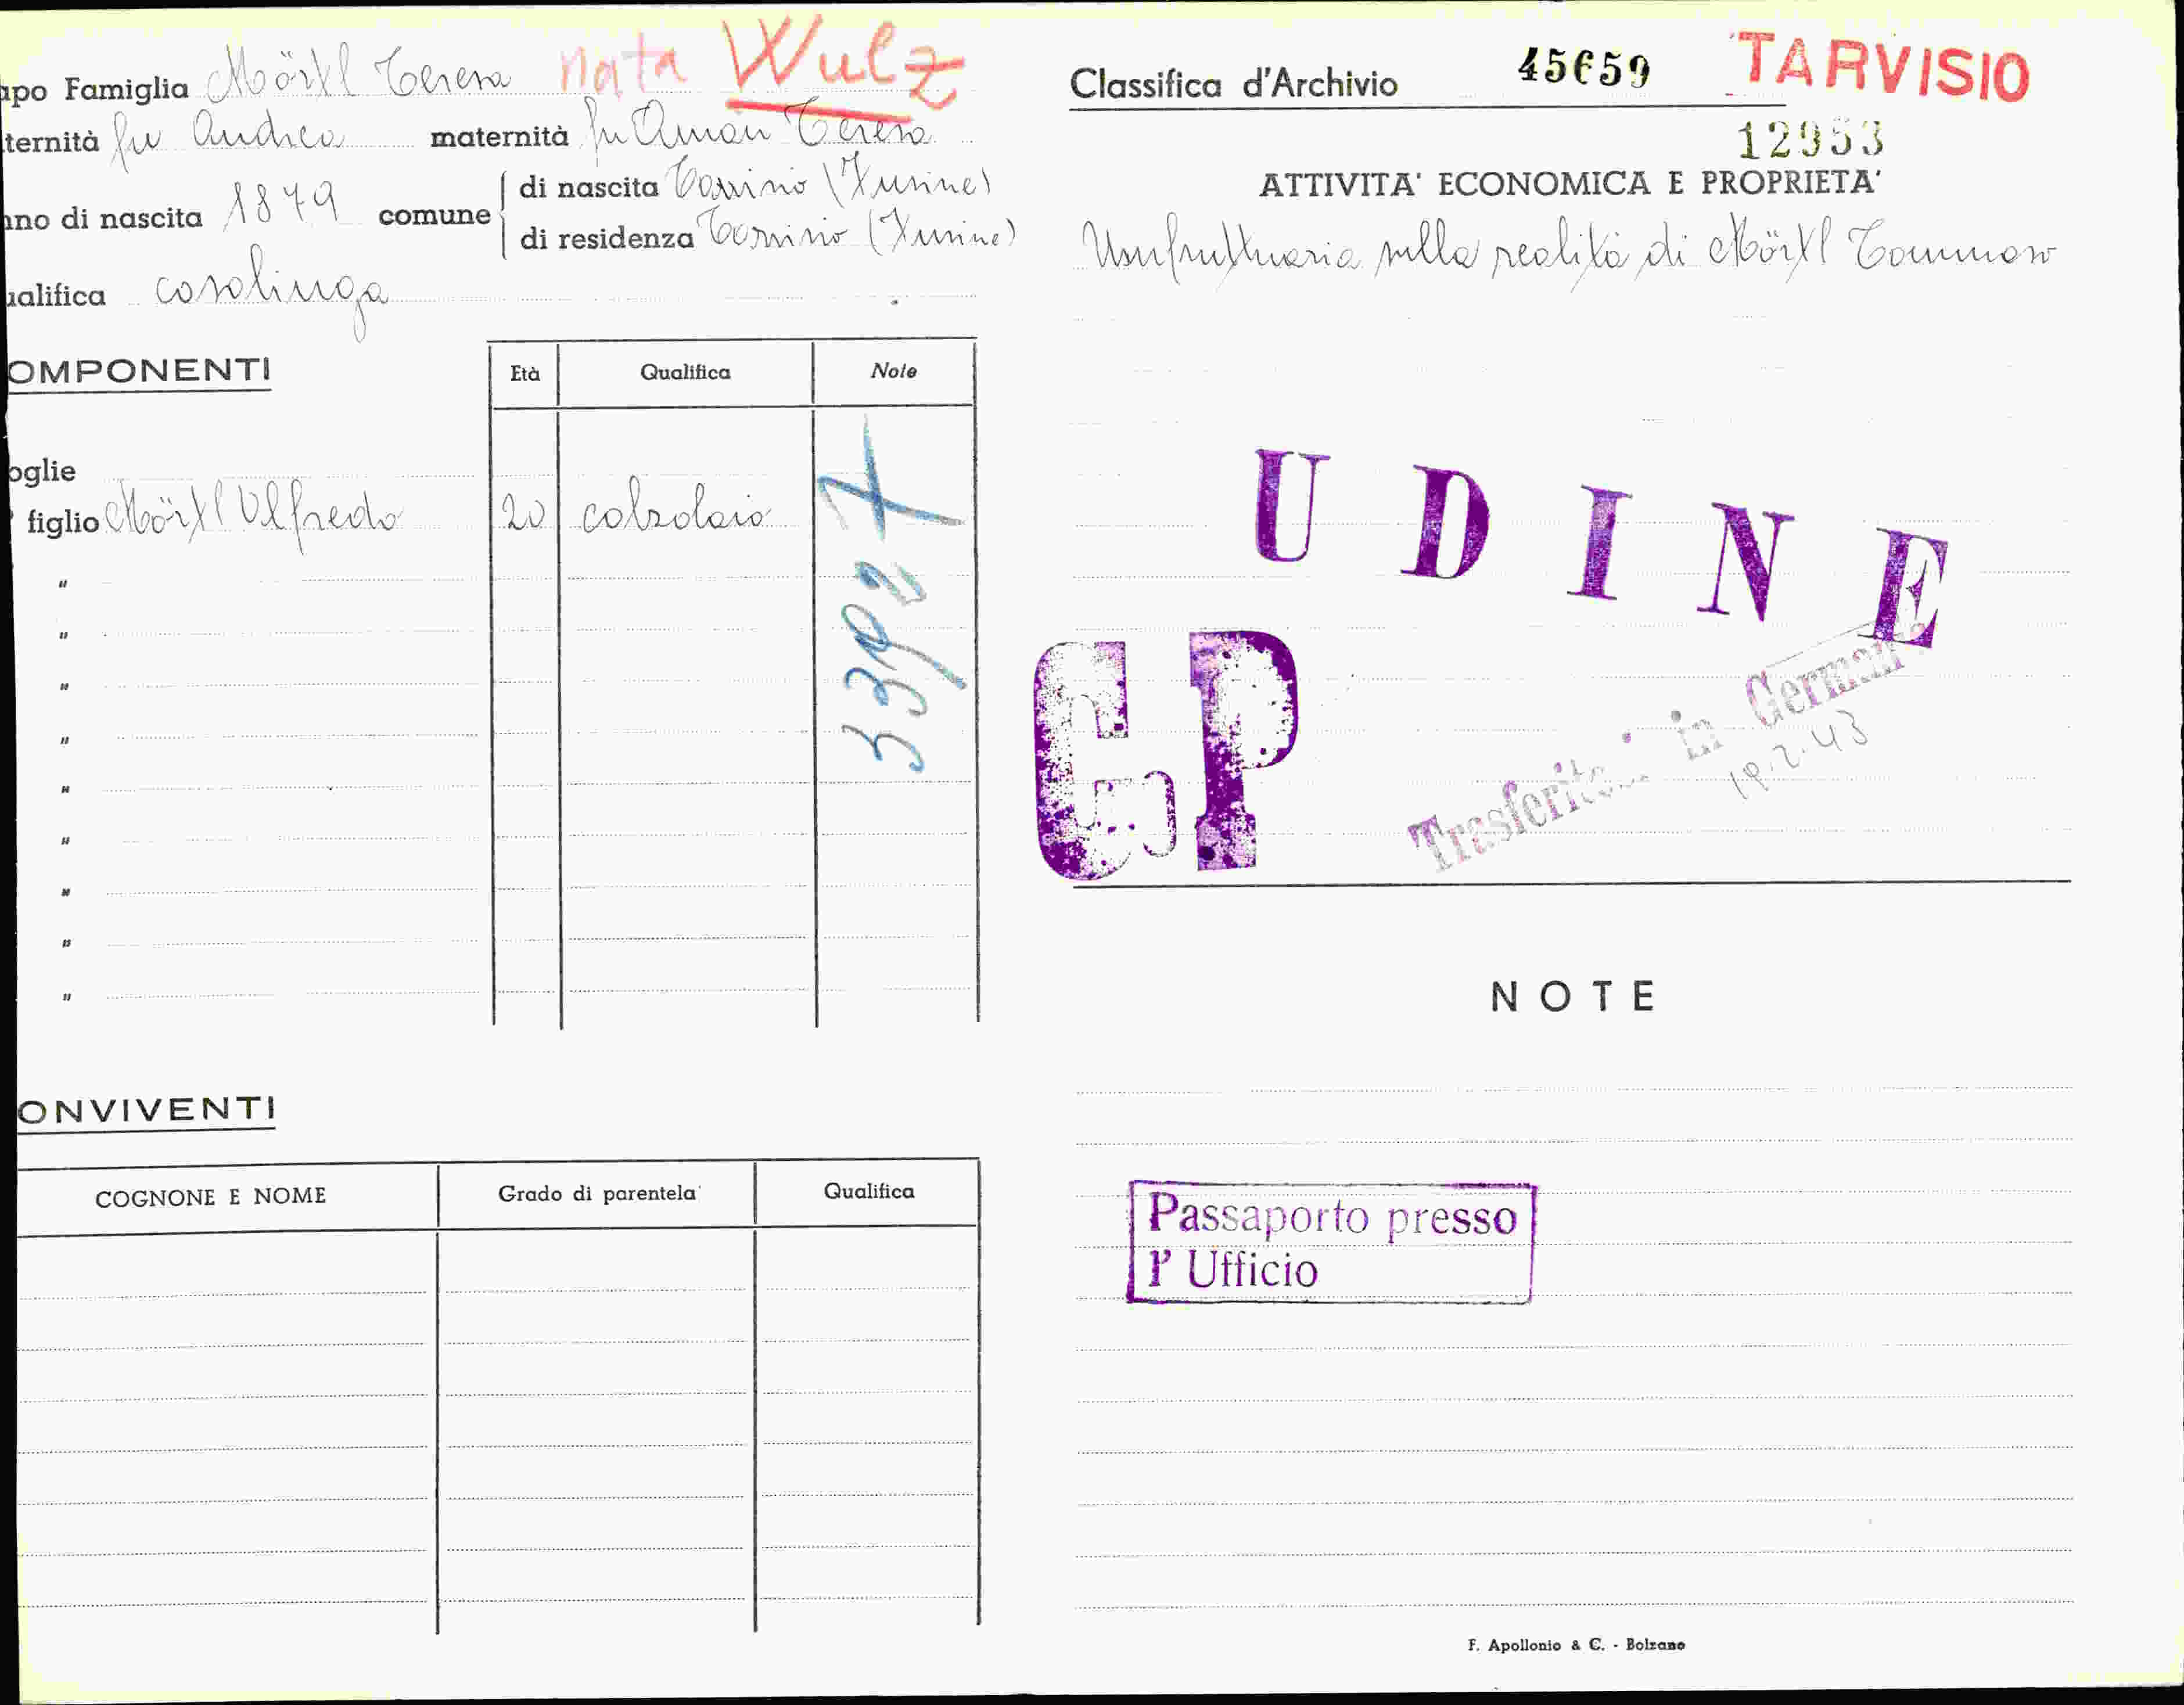 apo Famiglia Mörtl Teresa nata Wulz
ternità fu Andrea maternità fu Aman Teresa
nno di nascita 1879 comune di nascita Tarvisio (Fusine)
di residenza Tarvisio (Fusine)
ualifica casalinga
OMPONENTI
Età Qualifica Note
oglie
figlio Mörtl Alfredo 20 calzolaio
"
"
"
"
"
"
"
"
"
ONVIVENTI
COGNONE E NOME Grado di parentela Qualifica
Classifica d'Archivio 45659 TARVISIO
12953
ATTIVITA' ECONOMICA E PROPRIETA'
Usufruttuaria sulla realità di Mörtl Tommaso
UDINE
C.P
Trasferito in German
19.2.43
NOTE
Passaporto presso
l' Ufficio
F. Apollonio & C. - Bolzano